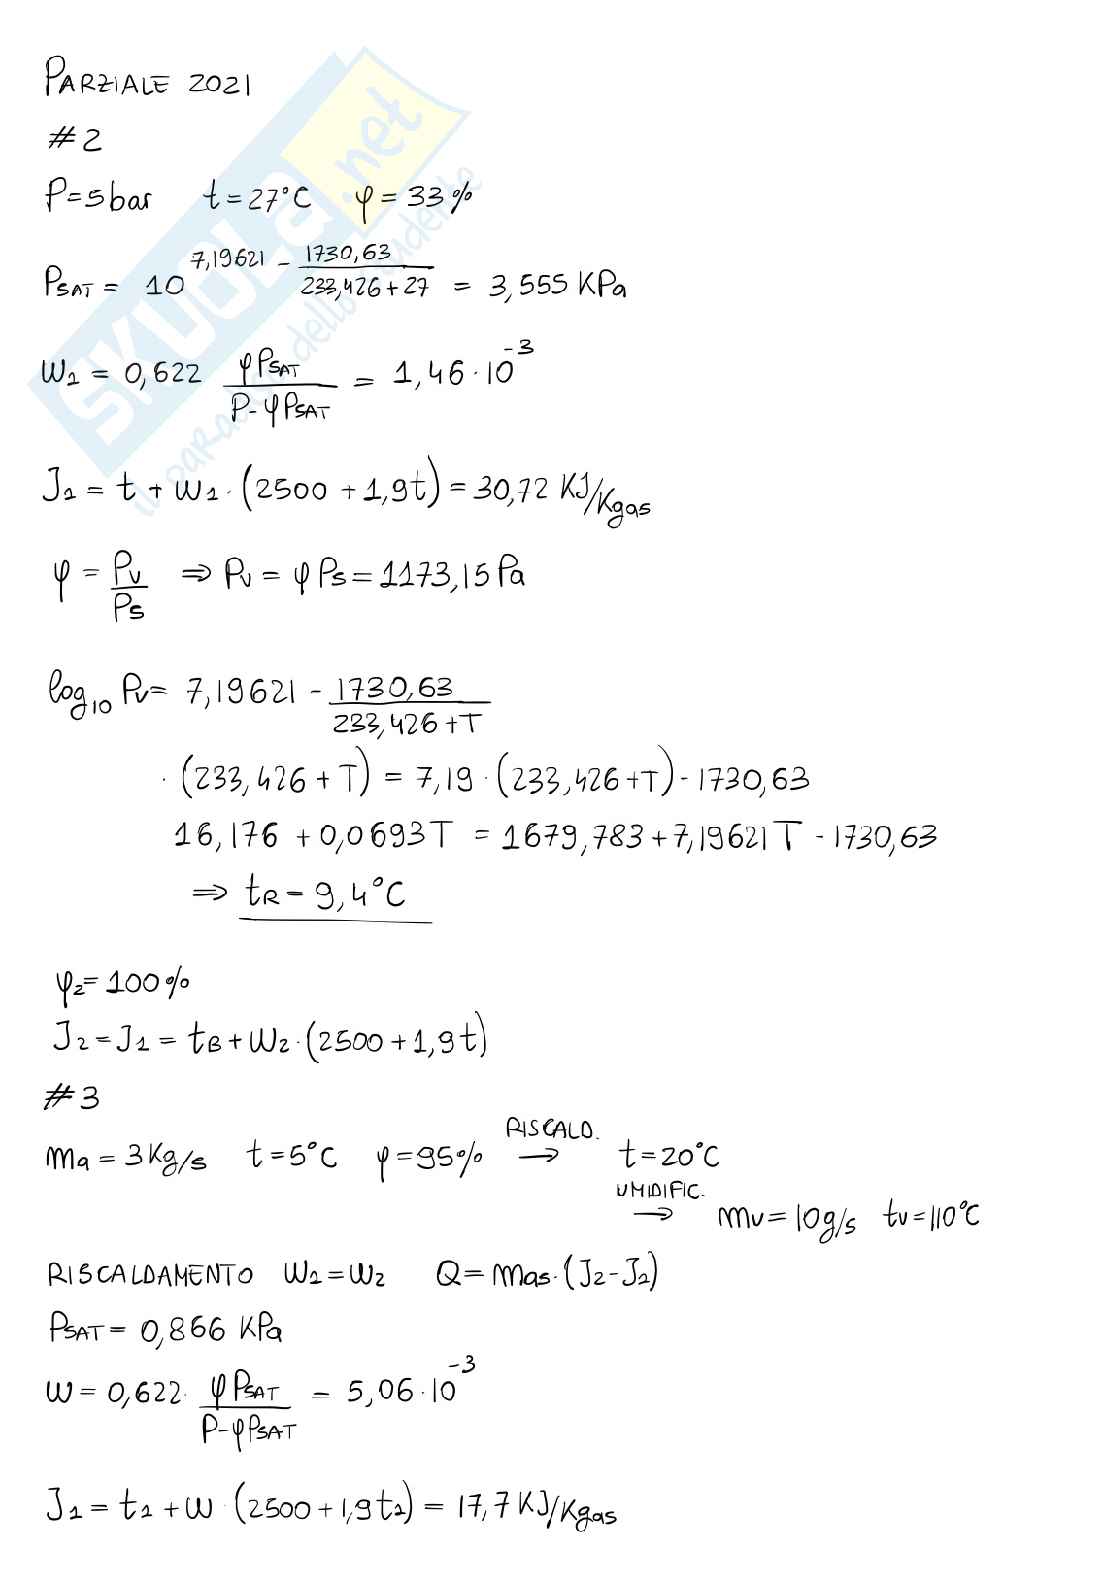 PARZIALE 2021
#2
P=5bar t=27°C φ=33%
PSAT = 10^(7,19621 - 1730,63/(233,426+27)) = 3,555 KPa
W1 = 0,622 φPSAT/(P-φPSAT) = 1,46·10^-3
J1 = t + W1·(2500+1,9t) = 30,72 KJ/Kgas
φ = Pv/Ps ⇒ Pv = φPs = 1173,15 Pa
log10 Pv = 7,19621 - 1730,63/(233,426+T)
·(233,426+T) = 7,19·(233,426+T) - 1730,63
16,176 + 0,0693T = 1679,783 + 7,19621T - 1730,63
⇒ tR - 9,4°C
φ2 = 100%
J2 = J1 = tB + W2·(2500+1,9t)
#3
ma = 3Kg/s t=5°C φ=95% RISCALD. → t=20°C
UMIDIFIC. → mv=10g/s tv=110°C
RISCALDAMENTO W1=W2 Q = mas·(J2-J1)
PSAT = 0,866 KPa
W = 0,622· φPSAT/(P-φPSAT) - 5,06·10^-3
J1 = t1 + W·(2500+1,9t1) = 17,7 KJ/Kgas
SKUOLA.net
il paradiso dello studente